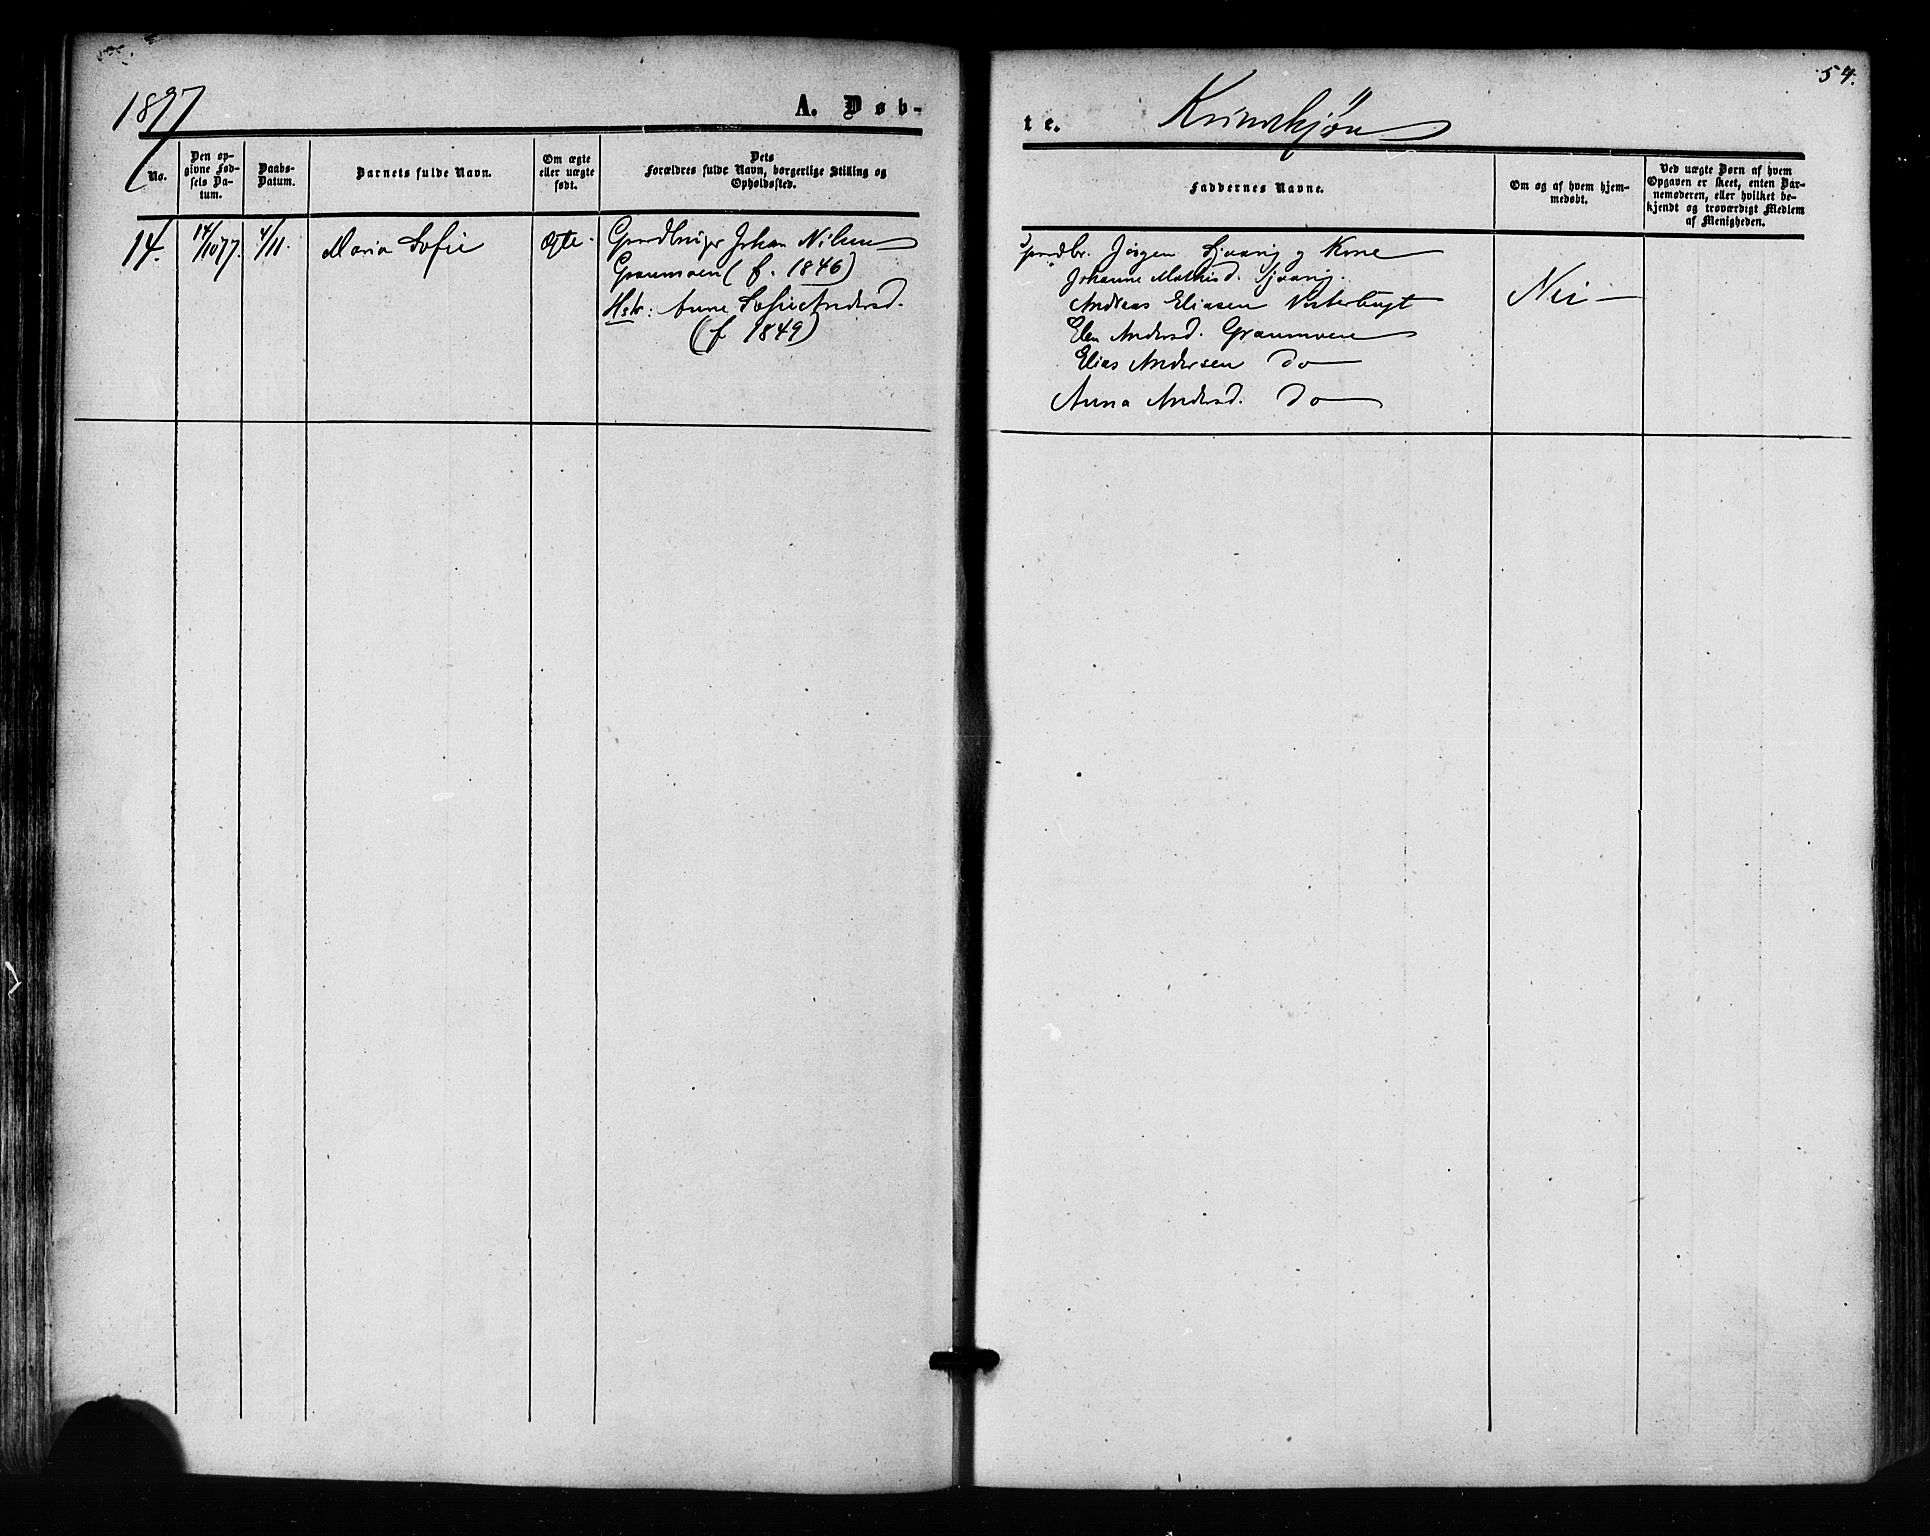 54.
1877
A. Døb-
te.
Kvindkjøn
No.
Den op-
givne Fød-
sels Da-
tum.
Daabs-
Datum.
Barnets fulde Navn.
Om ægte
eller uægte
født.
Dets
Forældres fulde Navn, borgerlige Stilling og
Opholdssted.
Faddernes Navne.
Om og af hvem hjem-
medøbt.
Ved uægte Børn af hvem
Opgaven er skeet, enten Bar-
nemoderen, eller hvilket be-
kjendt og troværdigt Medlem
af Menigheden.
14.
14/10 77.
4/11.
Maria Sofie
Ægte.
Gaardbruger Johan Nilsen
Graumoen (f. 1846)
Hstr: Anne Sofie Andersd.
(f 1849)
Gaardbr. Jørgen Sjvaag og Kone
Johanne Mathisd. Sjvaag.
Andreas Eliasen Vesterbugt
Elen Andersd. Graumoen
Elias Andersen do
Anna Andersd. do
Nei